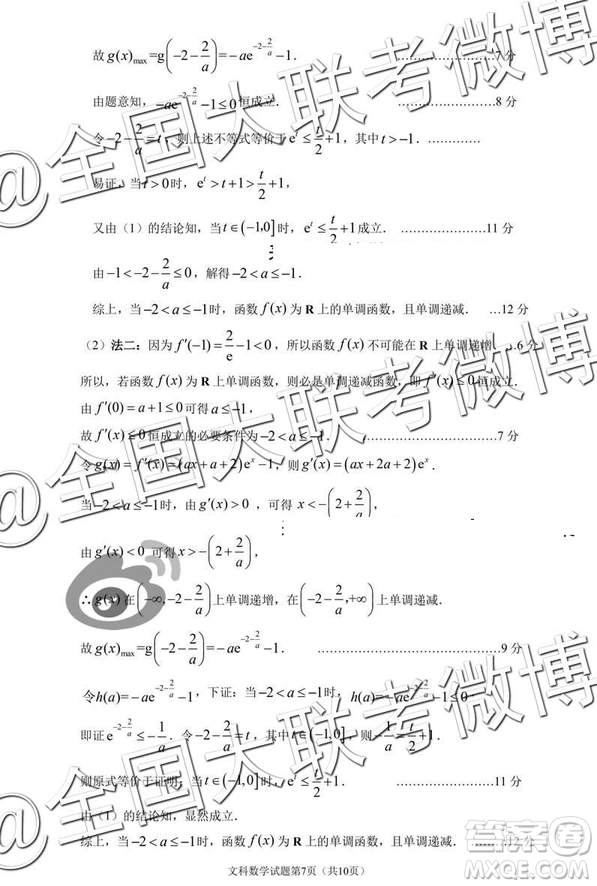 故g(x)max=g(-2-2/a)=-ae^(-2-2/a)-1. ……………………7分
由题意知,-ae^(-2-2/a)-1≤0恒成立. ……………………8分
令-2-2/a=t,则上述不等式等价于e^t≤t/2+1,其中t>-1.…………
易证,当t>0时,e^t>t+1>t/2+1,
又由(1)的结论知,当t∈(-1,0]时,e^t≤t/2+1成立. …………………11分
由-1<-2-2/a≤0,解得-2<a≤-1.
综上,当-2<a≤-1时,函数f(x)为R上的单调函数,且单调递减. …12分
(2)法二:因为f′(-1)=2/e-1<0,所以函数f(x)不可能在R上单调递增. …6分
所以,若函数f(x)为R上单调函数,则必是单调递减函数,即f′(x)≤0恒成立.
由f′(0)=a+1≤0可得a≤-1,
故f′(x)≤0恒成立的必要条件为-2<a≤-1. ……………………7分
令g(x)=f′(x)=(ax+a+2)e^x-1,则g′(x)=(ax+2a+2)e^x.
当-2<a≤-1时,由g′(x)>0,可得x<-(2+2/a),
由g′(x)<0可得x>-(2+2/a),
∴g(x)在(-∞,-2-2/a)上单调递增,在(-2-2/a,+∞)上单调递减.
故g(x)max=g(-2-2/a)=-ae^(-2-2/a)-1. ……………………9分
令h(a)=-ae^(-2-2/a)-1,下证:当-2<a≤-1时,h(a)=-ae^(-2-2/a)-1≤0.
即证e^(-2-2/a)≤-1/a.令-2-2/a=t,其中t∈(-1,0],则-1/a=t/2+1.
则原式等价于证明:当t∈(-1,0]时,e^t≤t/2+1. ……………………11分
由(1)的结论知,显然成立.
综上,当-2<a≤-1时,函数f(x)为R上的单调函数,且单调递减. ………12分
文科数学试题第7页(共10页)
@全国大联考微博
@全国大联考微博
@全国大联考微博
答案圈
MXQE.COM